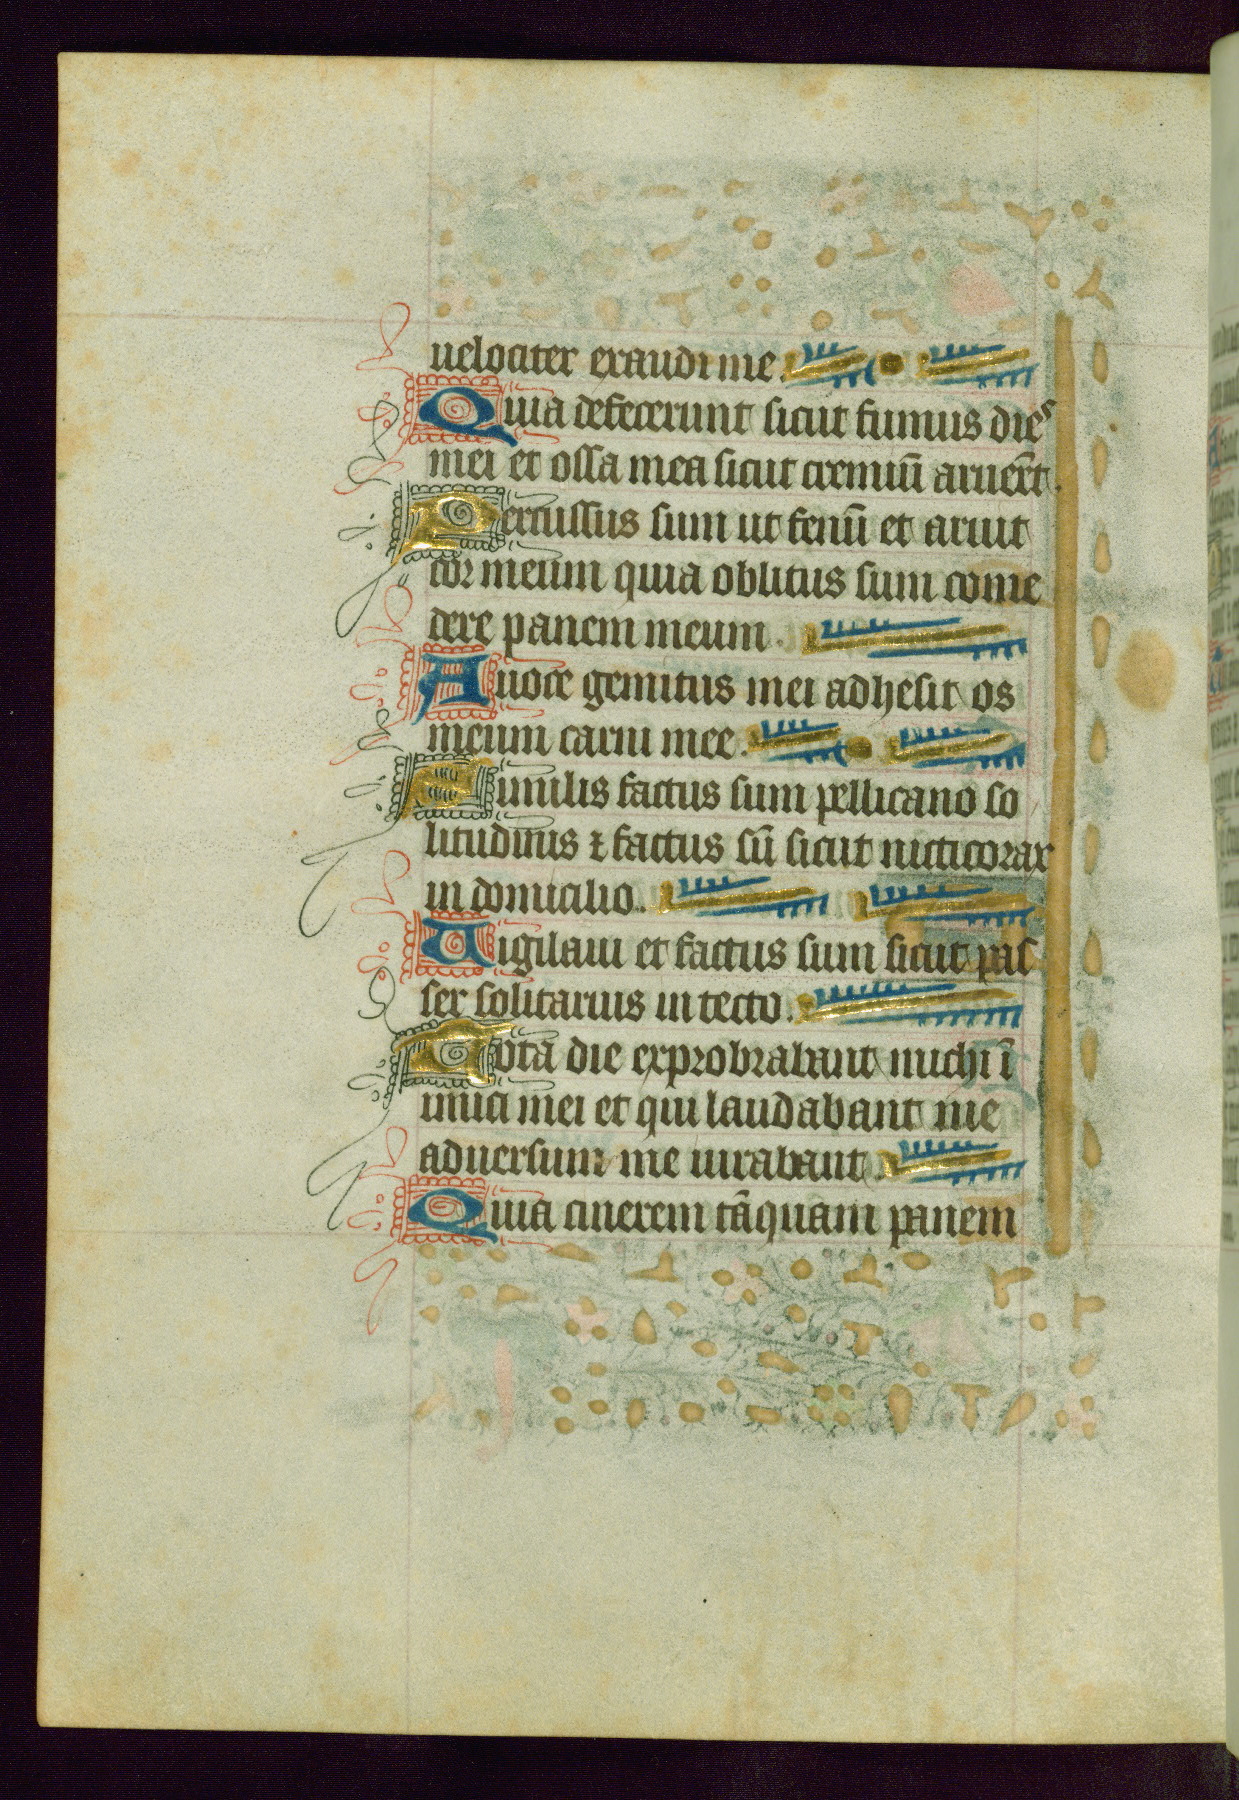 uelociter exaudi me.
Quia defecerunt sicut fumus dies
mei et ossa mea sicut cremiū aruer̄t.
Percussus sum ut fenū et aruit
cor meum quia oblitus sum come
dere panem meum.
A uoce gemitus mei adhesit os
meum carni mee.
Similis factus sum pellicano so
litudinis ⁊ factus sū sicut nicticorax
in domicilio.
Uigilaui et factus sum sicut pas
ser solitarius in tecto.
Tota die exprobrabant michi ī
imici mei et qui laudabant me
aduersum me iurabant.
Quia cinerem tāquam panem